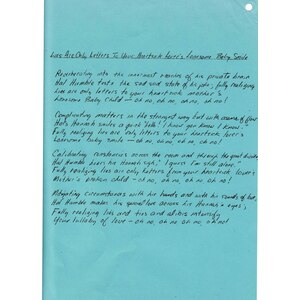 Lies Are Only Letters To Your Heartsick Lover's Lonesome Baby Smile
Reverberating into the innermost reaches of his private brain
Hal Humble tests the sad said state of his pate, fully realizing
lies are only letters to your heartsick mother's
lonesome Baby child - oh no, oh no, oh no!
Complicating matters in the strangest way but with
Hal's Hannah smile is good "Yeah, I know you know I know"
Fully realizing lies are only letters to your heartsick lover's
Lonesome baby smile - oh no, oh no, oh no!
Calibrating tendencies across the room and through the great divide
Hal Humble hears his Hannah sigh, "I guess I'm still alive"
Fully realizing lies are only letters from your heartsick lover's
Mother's problem child - oh no, oh no, oh no!
Mitigating circumstances with his hands and with his sounds of
Hal Humble makes his special love across his Hannah's eyes,
Fully realizing lies and ties and alibis intensify
Your lullaby of love - oh no, oh no, oh no!